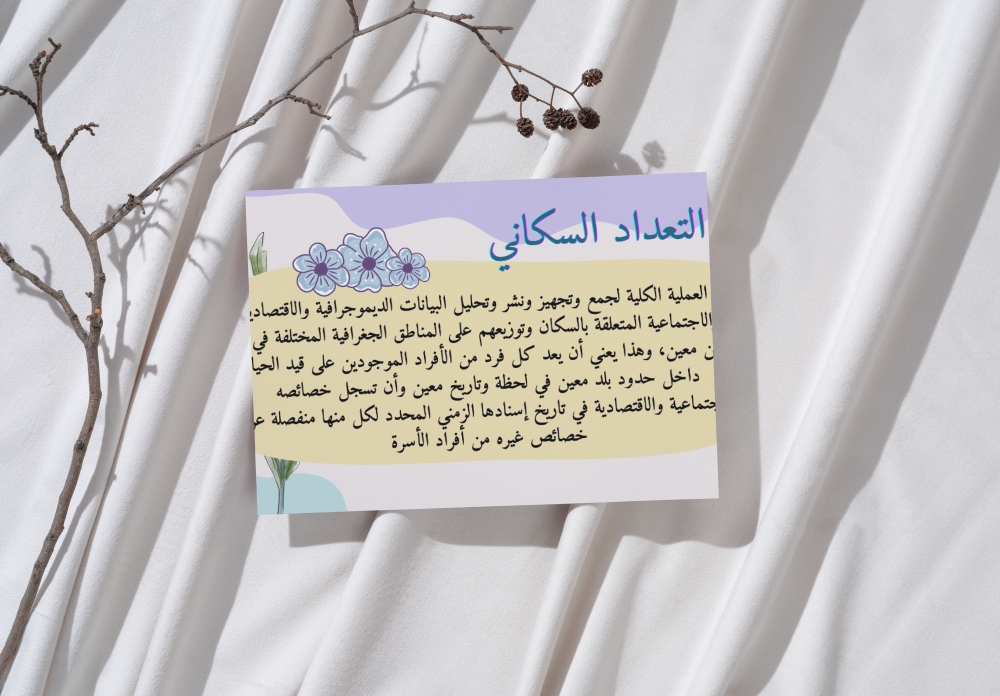 التعداد السكاني
العملية الكلية لجمع وتجهيز ونشر وتحليل البيانات الديموجرافية
الاجتماعية المتعلقة بالسكان وتوزيعهم على المناطق الجغرافية المختلفة في
معين، وهذا يعني أن يعد كل فرد من الأفراد الموجودين على قيد
داخل حدود بلد معين في لحظة وتاريخ معين وأن تسجل خصائصه
والاقتصادية في تاريخ إسنادها الزمني المحدد لكل منها منفصلة
خصائص غيره من أفراد الأسرة